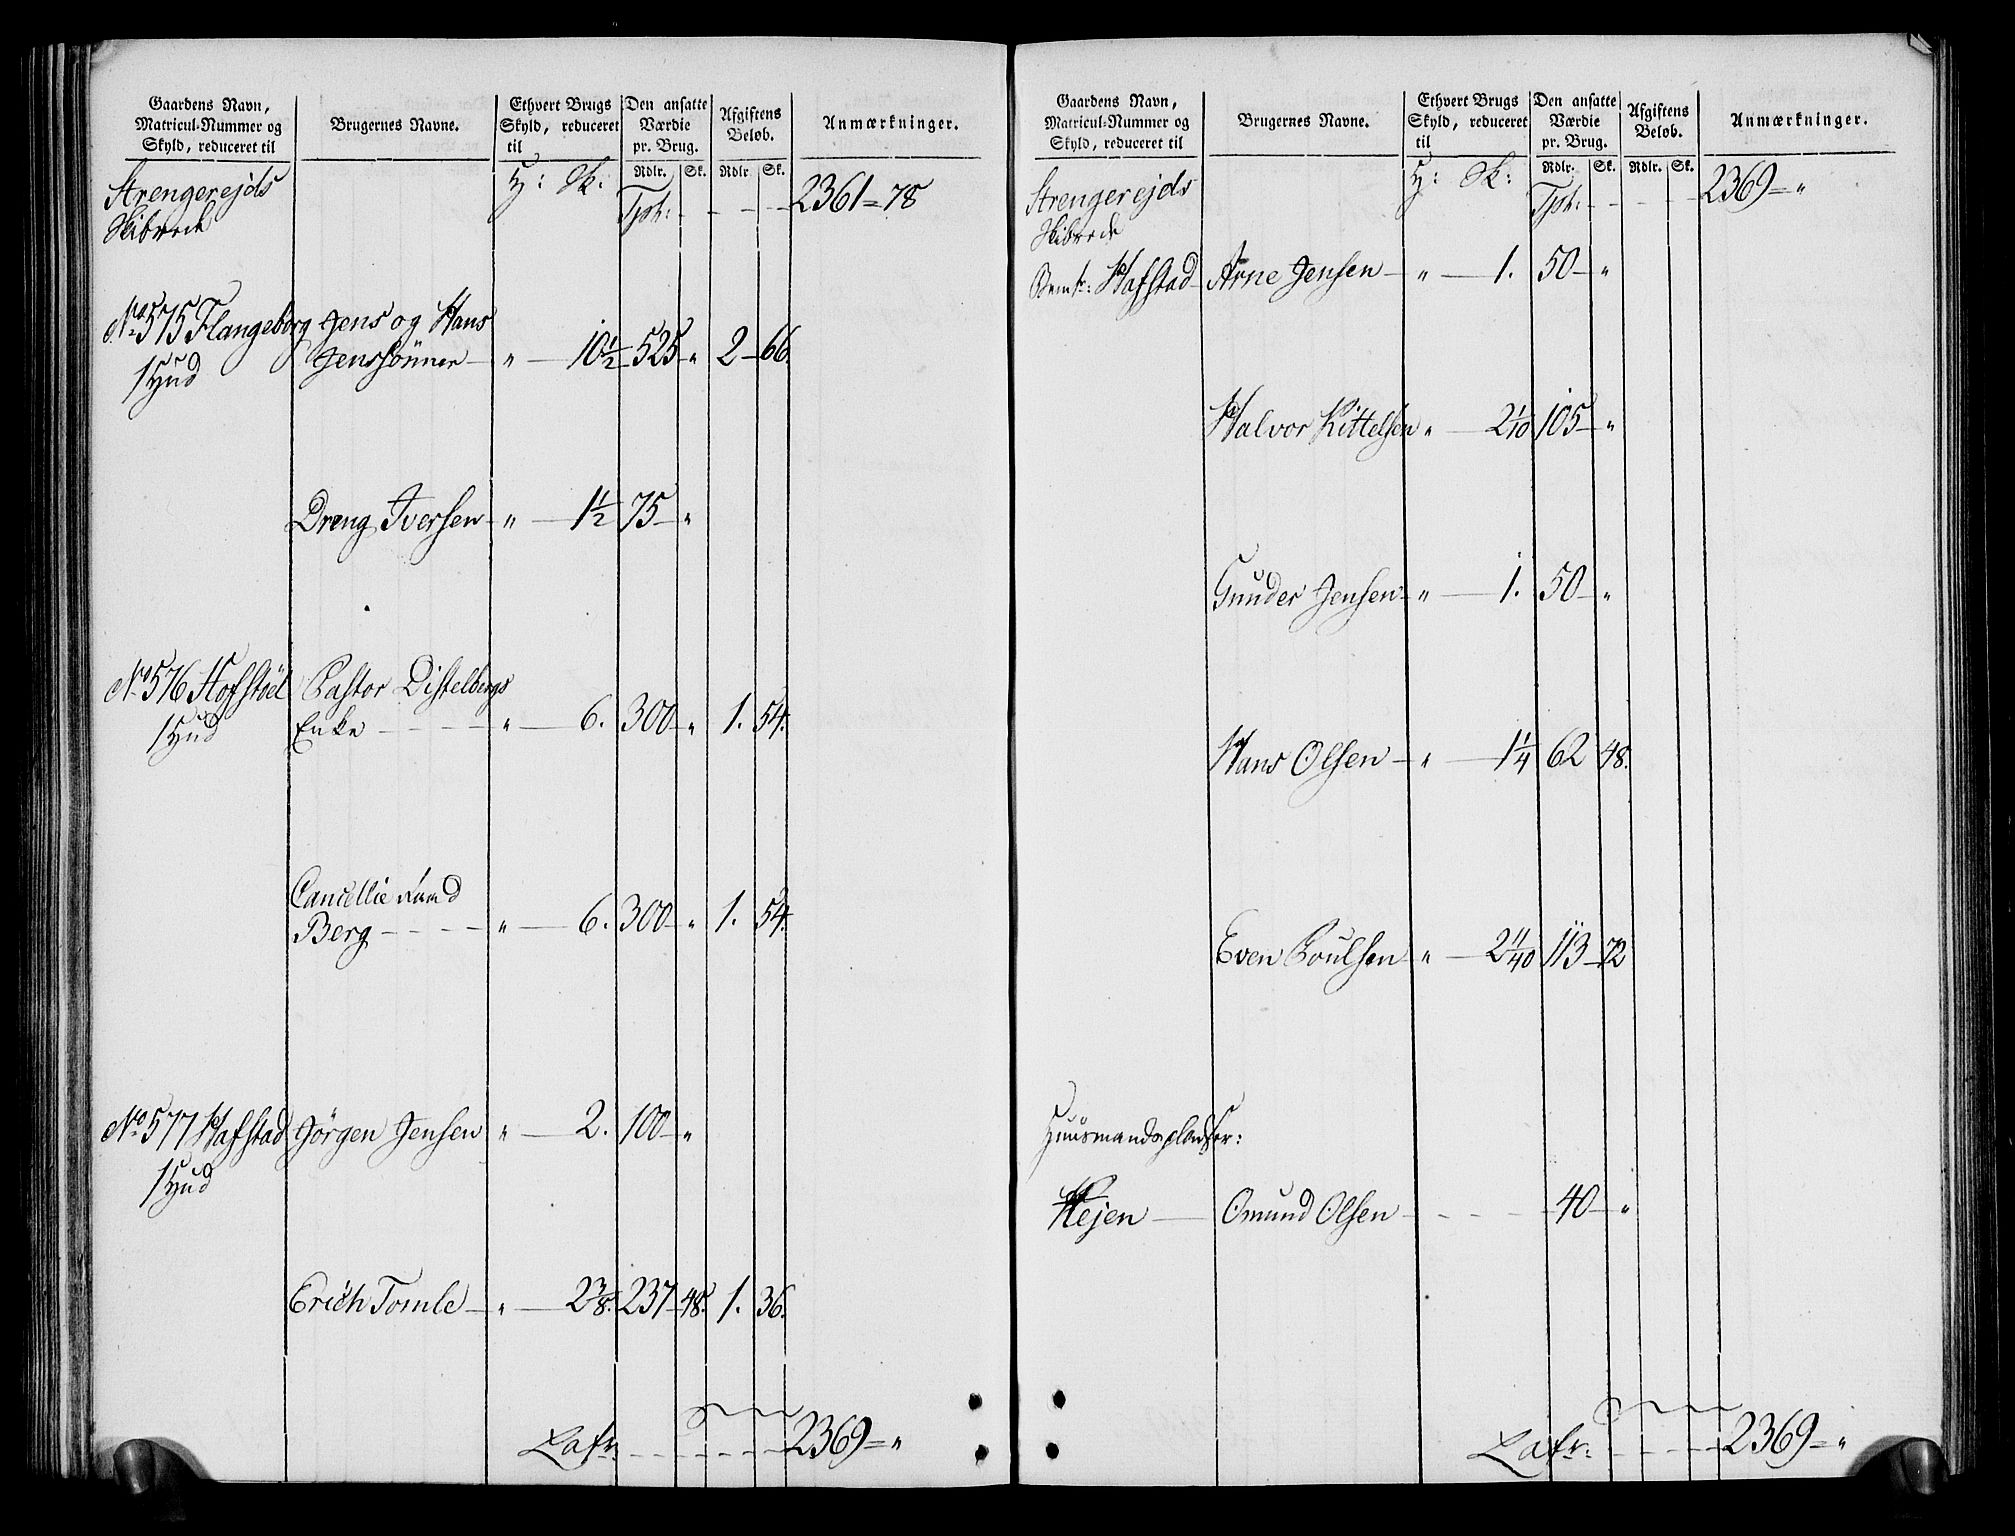 Gaardens Navn, Matricul-Nummer og Skyld, reduceret til
Brugernes Navne.
Ethvert Brugs Skyld, reduceret til
Den ansatte Værdie pr. Brug.
Afgiftens Beløb.
Anmærkninger.
Rdlr. Sk. Rdlr Sk.
Strengerejds H: Sk: Tph: - - - - 2361 = 78
Skibrede
No 575 Flangeborg Jens og Hans
1 Hud Jenssönner - " - 10 1/2 525 - " 2 - 66.
Dreng Iversen - " - 1 1/2 75 - "
No 576 Hofstöel Pastor Distelbergs
1 Hud Enke - - - - " - 6. 300 - " 1. 54.
Cancellie Raad
Berg - - - - " - 6. 300 - " 1. 54.
No 577 Hafstad Jörgen Jensen " - 2. 100 - "
1 Hud
Erich Tomle - " - 2 3/8. 237 - 48. 1. 36.
Lafr: - - - - - - 2369 = "
Gaardens Navn, Matricul-Nummer og Skyld, reduceret til
Brugernes Navne.
Ethvert Brugs Skyld, reduceret til
Den ansatte Værdie pr. Brug.
Afgiftens Beløb.
Anmærkninger.
Rdlr. Sk. Rdlr. Sk.
Strengerejds H: Sk: Tph: - - - - 2369 = "
Skibrede
Hafstad - Arne Jensen - " - 1. 50 - "
Halvor Kittelsen " - 2 1/10 105 - "
Gunder Jensen - " - 1. 50 - "
Hans Olsen - " - 1 1/4 62 48.
Even Poulsen " - 2 11/40 113 - 72
Huusmandspladser:
Hejen - Omund Olsen - - - - 40 - "
Lafr: - - - - - 2369 = "